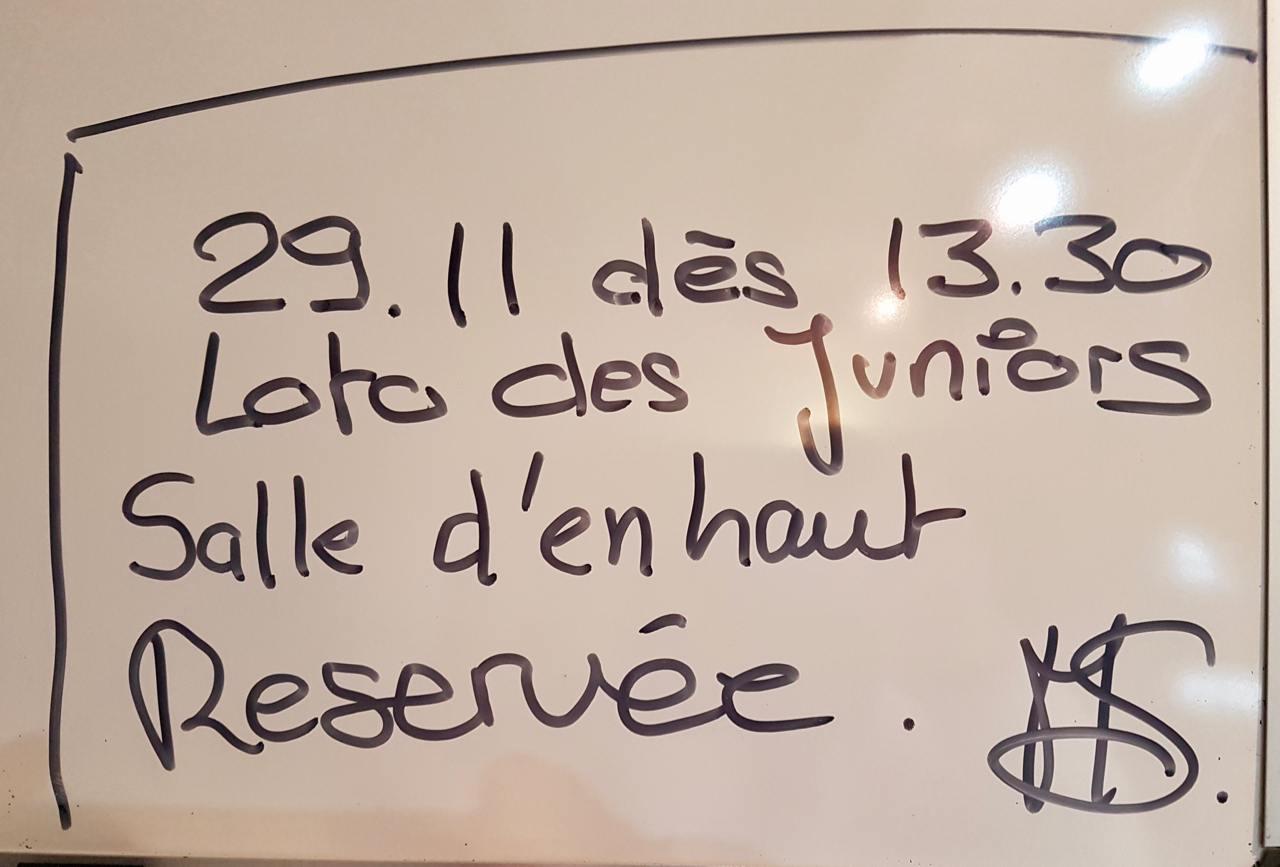 29.11 dès 13.30
Loto des Juniors
Salle d'en haut
Reservée.